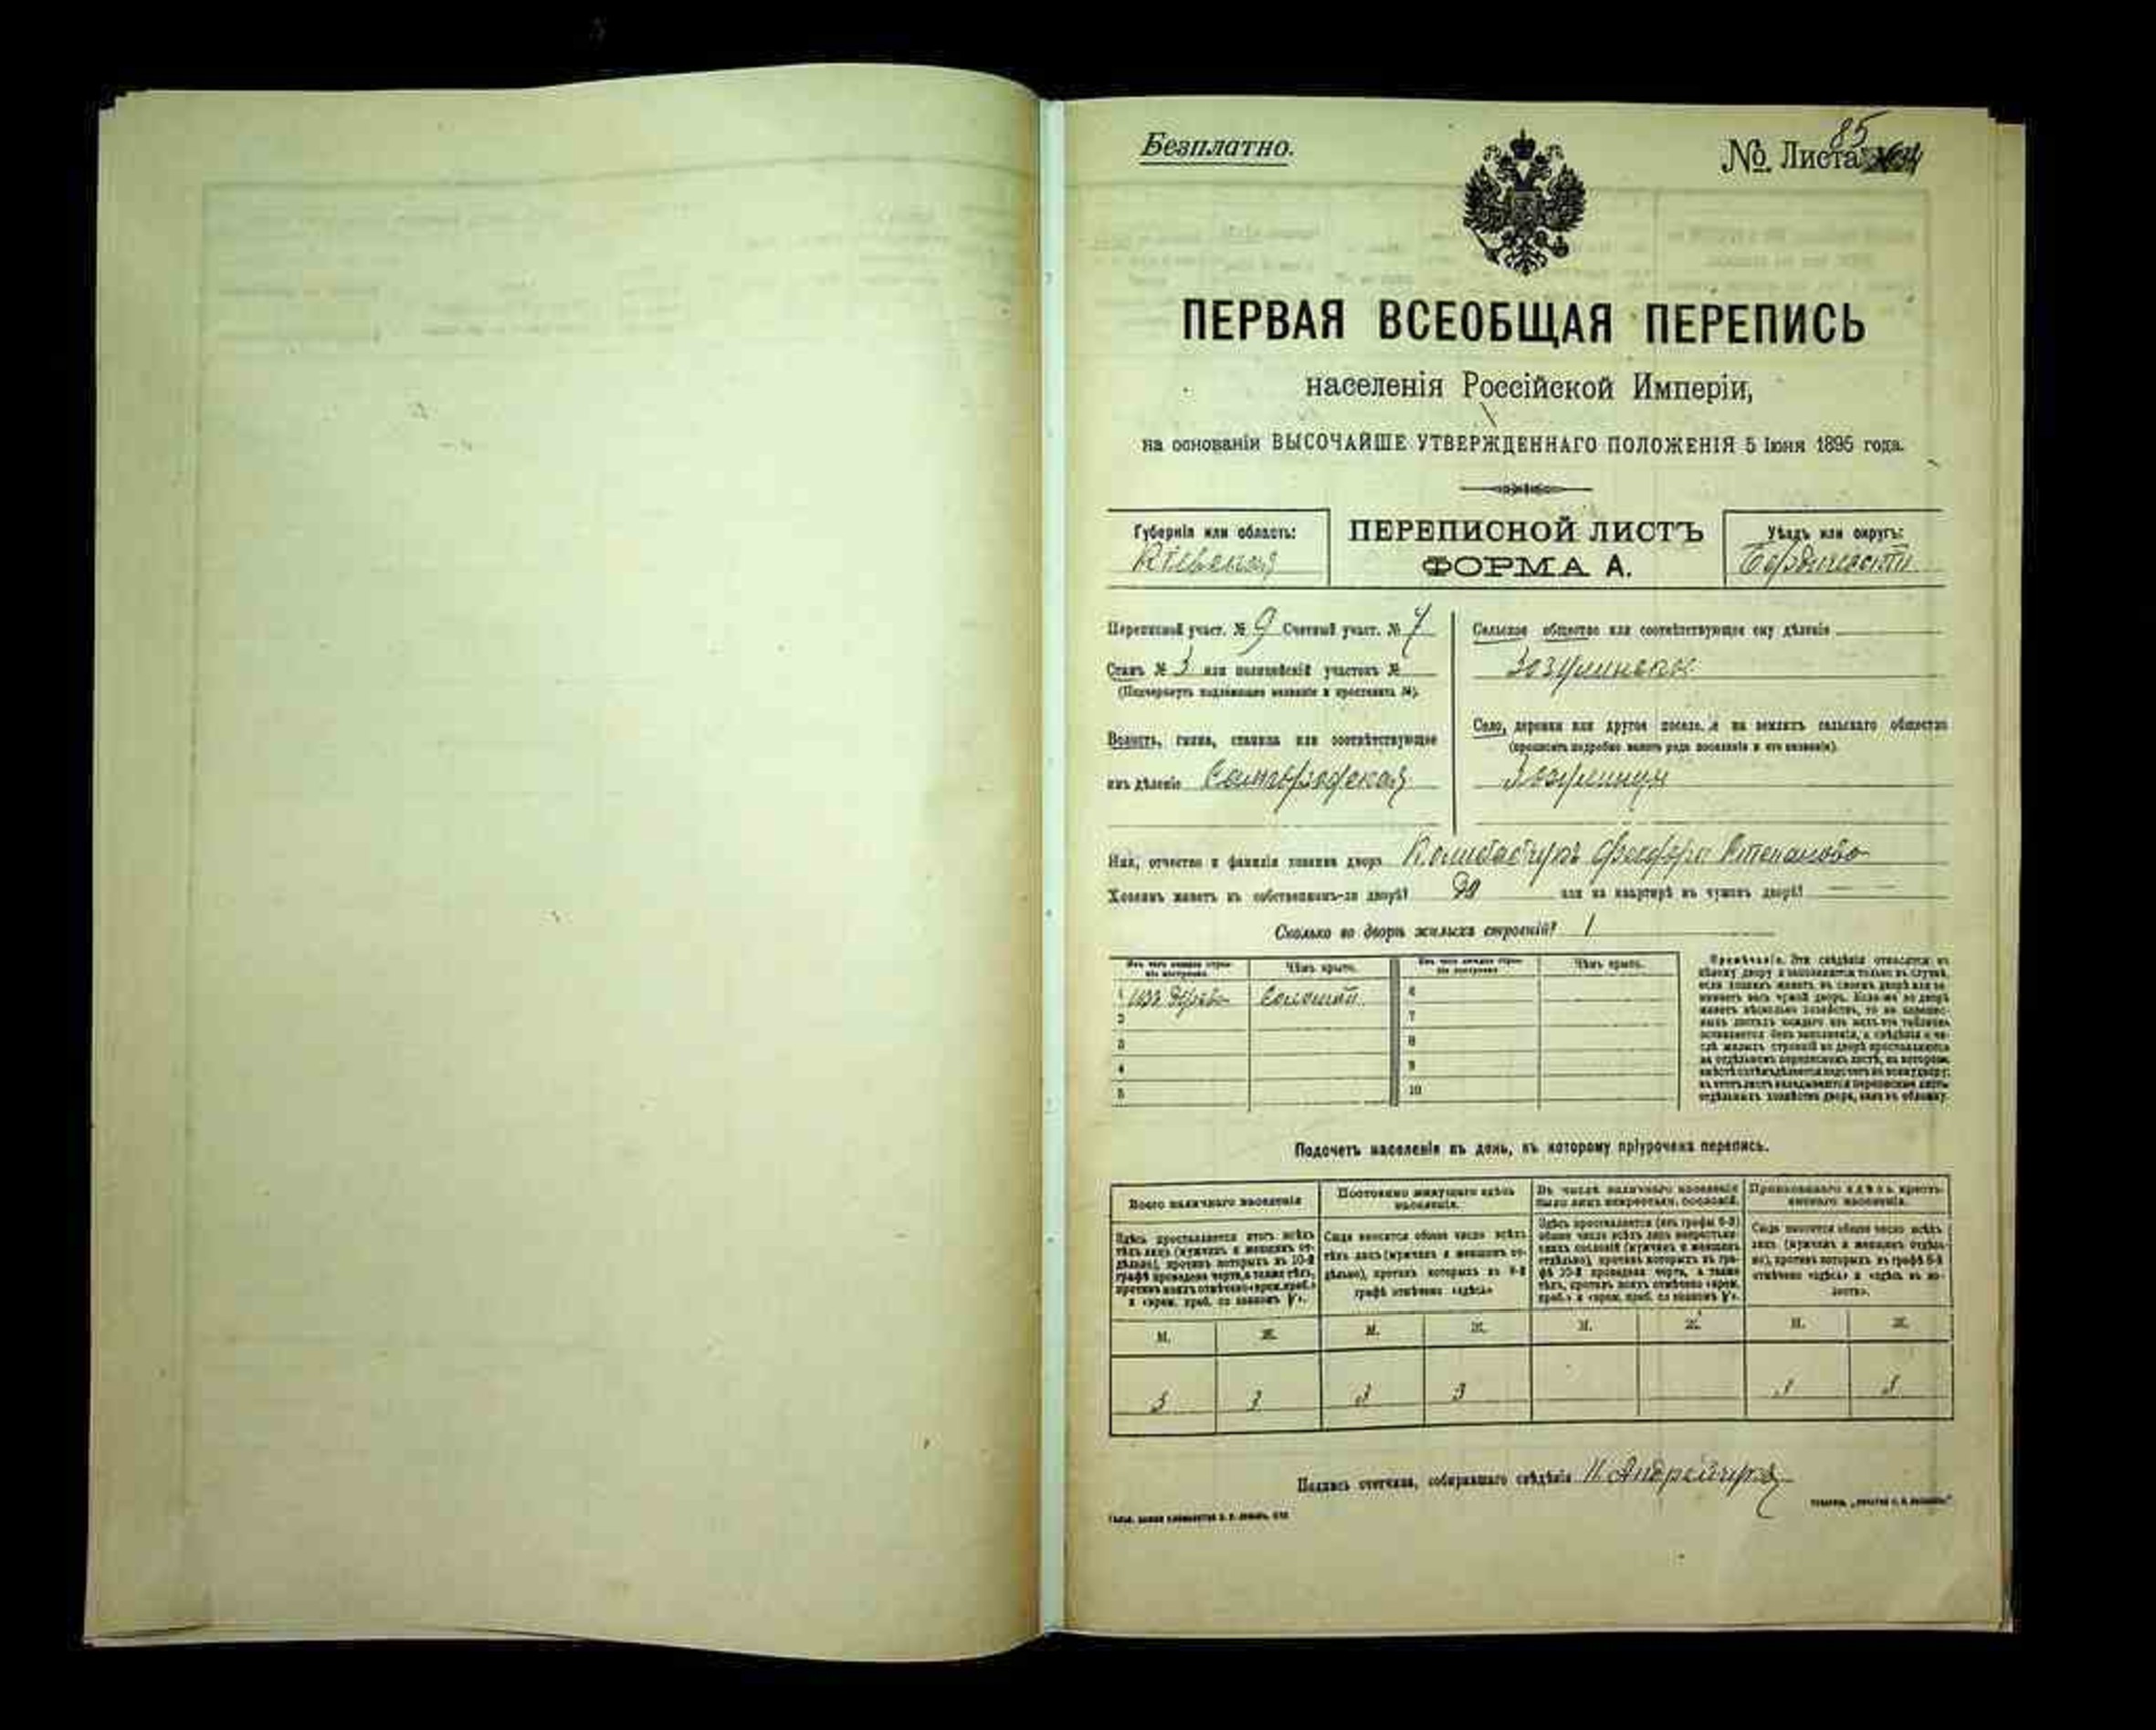 Безплатно.
№ Листа 85
ПЕРВАЯ ВСЕОБЩАЯ ПЕРЕПИСЬ
населенія Россійской Имперіи,
на основаніи ВЫСОЧАЙШЕ УТВЕРЖДЕННАГО ПОЛОЖЕНІЯ 5 Іюня 1895 года.
Губернія или область:
Кіевская
ПЕРЕПИСНОЙ ЛИСТЪ
ФОРМА А.
Уѣздъ или округъ:
Переписной участ. № 9 Счетный участ. № 7
Станъ № 3 или полицейскій участокъ №
(Подчеркнуть надлежащее названіе и проставить №).
Волость, гмина, станица или соотвѣтствующее
имъ дѣленіе
Сельское общество или соотвѣтствующее ему дѣленіе
Зозулинское
Село, деревня или другое поселе.е на земляхъ сельскаго общества
(прописать подробно какого рода поселеніе и его названіе).
Зозулинцы
Имя, отчество и фамилія хозяина двора
Хозяинъ живетъ въ собственномъ-ли дворѣ? да или на квартирѣ въ чужомъ дворѣ?
Сколько во дворѣ жилыхъ строеній? 1
Изъ чего каждое строеніе построено.
Чѣмъ крыто.
Изъ чего каждое строеніе построено.
Чѣмъ крыто.
1 изъ дерева Соломой
2
3
4
5
6
7
8
9
10
Примѣчаніе. Эти свѣдѣнія относятся къ
цѣлому двору и заполняются только въ случаѣ,
если хозяинъ живетъ въ своемъ дворѣ или занимаетъ
весь чужой дворъ. Если-же во дворѣ
живетъ нѣсколько хозяйствъ, то на переписныхъ
листахъ каждаго изъ нихъ эта табличка
оставляется безъ заполненія, а свѣдѣнія о числѣ
жилыхъ строеній во дворѣ проставляются
на отдѣльномъ переписномъ листѣ, на которомъ
Подсчетъ населенія въ день, къ которому пріурочена перепись.
Всего наличнаго населенія
Постоянно живущаго здѣсь населенія.
Въ числѣ наличнаго населенія было лицъ некрестьян. сословій.
Приписаннаго здѣсь крестьянскаго населенія.
Здѣсь проставляется итогъ всѣхъ
тѣхъ лицъ (мужчинъ и женщинъ отдѣльно),
противъ которыхъ въ 10-й
графѣ проведена черта, а также тѣхъ,
противъ коихъ отмѣчено «врем. преб.»
и «врем. преб. со знакомъ V».
Сюда вносится общее число всѣхъ
тѣхъ лицъ (мужчинъ и женщинъ отдѣльно),
противъ которыхъ въ 9-й
графѣ отмѣчено «здѣсь»
Здѣсь проставляется (изъ графы 6-й)
общее число всѣхъ лицъ некрестьянскихъ
сословій (мужчинъ и женщинъ
отдѣльно), противъ которыхъ въ графѣ
10-й проведена черта, а также
тѣхъ, противъ коихъ отмѣчено «врем.
преб.» и «врем. преб. со знакомъ V».
Сюда вносится общее число всѣхъ
лицъ (мужчинъ и женщинъ отдѣльно),
противъ которыхъ въ графѣ 8-й
отмѣчено «здѣсь» и «здѣсь въ волости».
М. Ж. М. Ж. М. Ж. М. Ж.
3 3 3 3 3 3
Подпись счетчика, собиравшаго свѣдѣнія